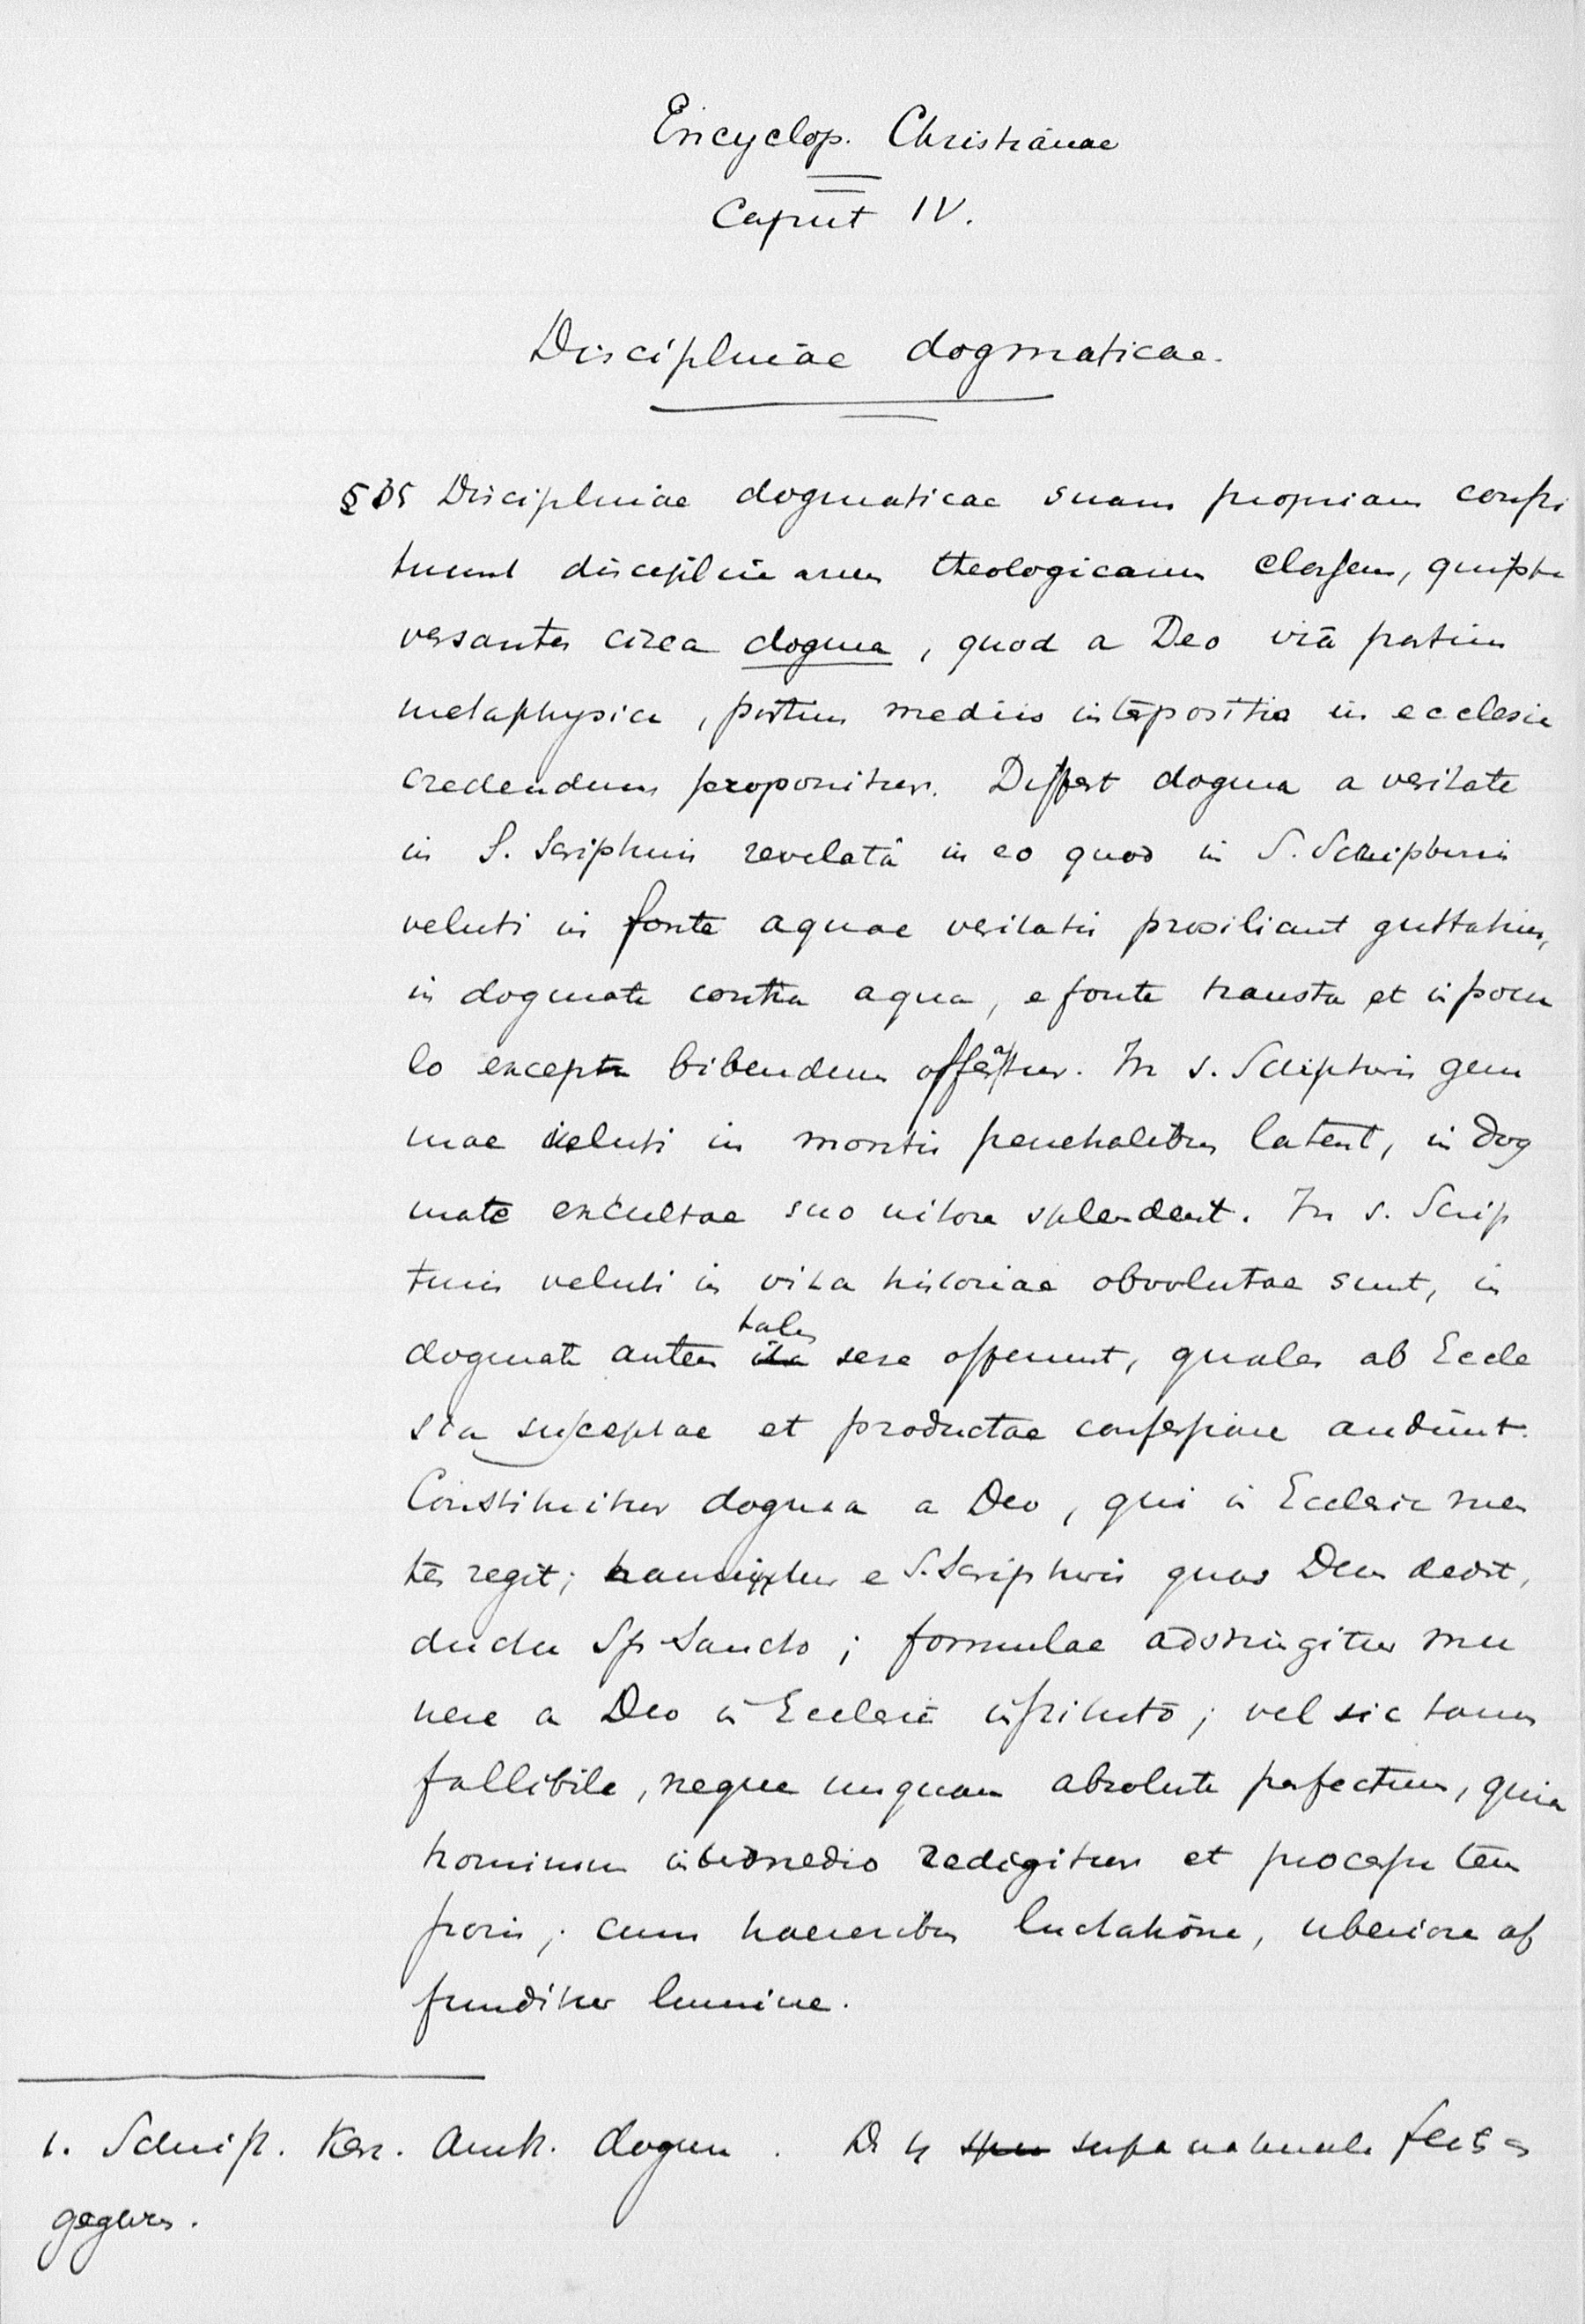 Encyclop. Christianae
Caput IV.
Disciplinae dogmaticae.
§ 35 Disciplinae dogmaticae suam propriam consti
tuunt disciplinarum theologicarum classem, quippe
versantes circa dogma, quod a Deo viâ partim
metaphysica, partim mediis interpositis in ecclesia
credendum proponitur. Differt dogma a veritate
in S. Scripturis revelatâ in eo quod in S. Scripturis
veluti in fonte aquae veritatis prosiliant guttatim,
in dogmate contra aqua, e fonte hausta et in pocu
lo excepta bibendum offeratur. In s. Scripturis gem
mae veluti in montis penetralibus latent, in dog
mate excultae suo nitore splendent. In s. Scrip
turis veluti in vita historiae obvolutae sunt, in
dogmate autem tales sese offerunt, quales ab Eccle
sia susceptae et productae confessione audiunt.
Constituitur dogma a Deo, qui in Ecclesia men
tes regit; hauritur e S. Scripturis quas Deus dedit,
ductu Sp Sancto; formulae adstringitur mu
nere a Deo in Ecclesiâ instituto; vel sic tamen
fallibile, neque unquam absolute perfectum, quia
hominum intermedio redigitur et processu tem
poris; cum haeresibus luctatione, uberiore af
funditur lumine.
1. Schrift. Ker. Amt. dogma. D supranatureele
gegeven.